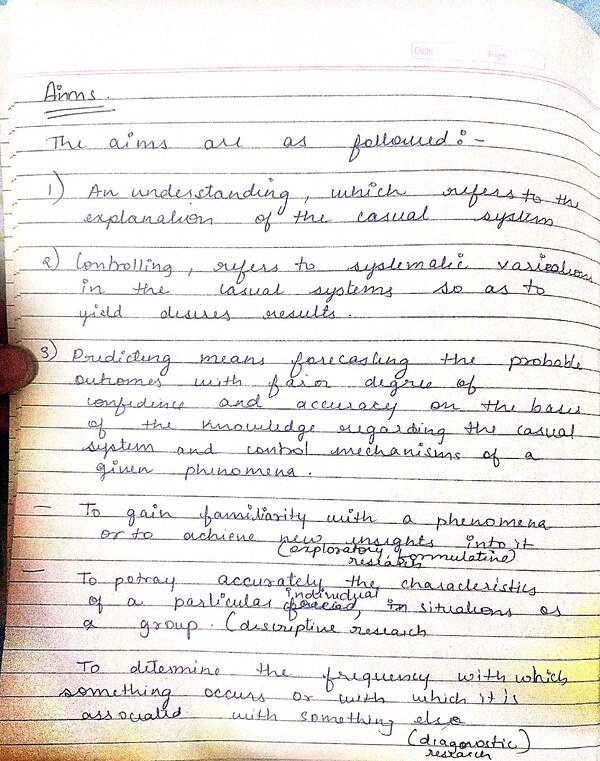 Date Page
Aims.
The aims are as followed:-
1) An understanding, which refers to the
explanation of the casual system
2) Controlling, refers to systematic variation
in the casual systems so as to
yield desires results.
3) Predicting means forecasting the probable
outcomes with fair degree of
confidence and accuracy on the basis
of the knowledge regarding the casual
system and control mechanisms of a
given phenomena.
- To gain familiarity with a phenomena
or to achieve new insights into it
(exploratory formulative)
research
- To potray accurately the characteristics
of a particular individual, in situations or
a group. (discriptive research
To ditermine the frequency with which
something occurs or with which it is
associated with something else
(diagonostic)
research